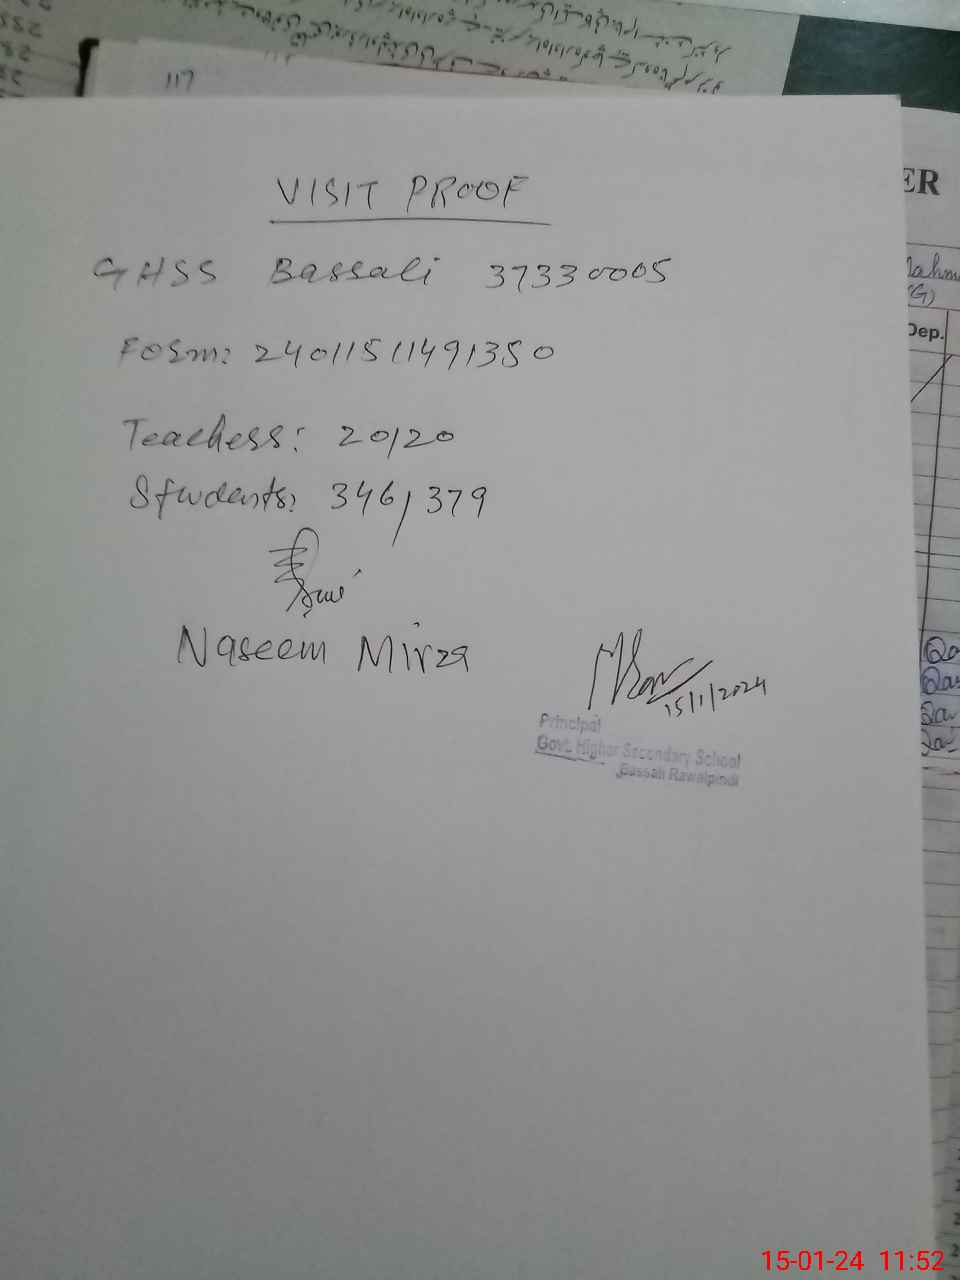 117
VISIT PROOF
GHSS Bassali 37330005
Form: 24011511491350
Teachers: 20/20
Students: 346/379
Naseem Mirza
15/1/2024
Principal
Govt. Higher Secondary School
Bassali Rawalpindi
ER
(G)
Dep.
15-01-24 11:52